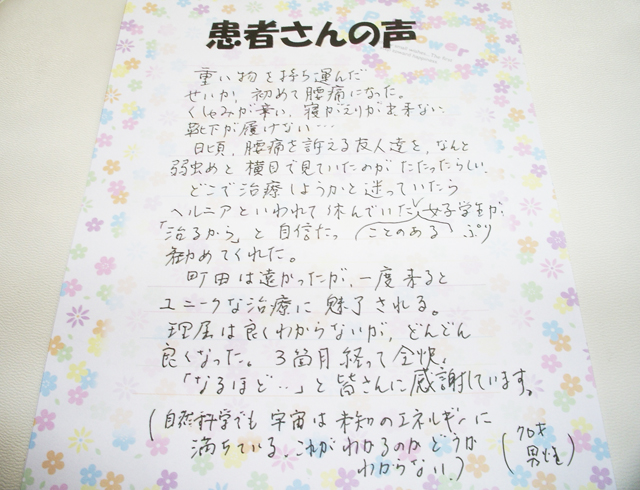 患者さんの声
重い物を持ち運んだ
せいか、初めて腰痛になった。
くしゃみが辛い、寝がえりが出来ない、
靴下が履けない…
日頃、腰痛を訴える友人達を、なんと
弱虫めと横目で見ていたのがたたったらしい。
どこで治療しようかと迷っていたら
ヘルニアといわれて休んでいた女子学生が、
ことのある
「治るから」と自信たっぷり
勧めてくれた。
町田は遠かったが、一度来ると
ユニークな治療に魅了される。
理屈は良くわからないが、どんどん
良くなった。3箇月経って全快。
「なるほど…」と皆さんに感謝しています。
(自然科学でも宇宙は未知のエネルギーに
満ちている。これがわかるのかどうか
わからない。)
男性)